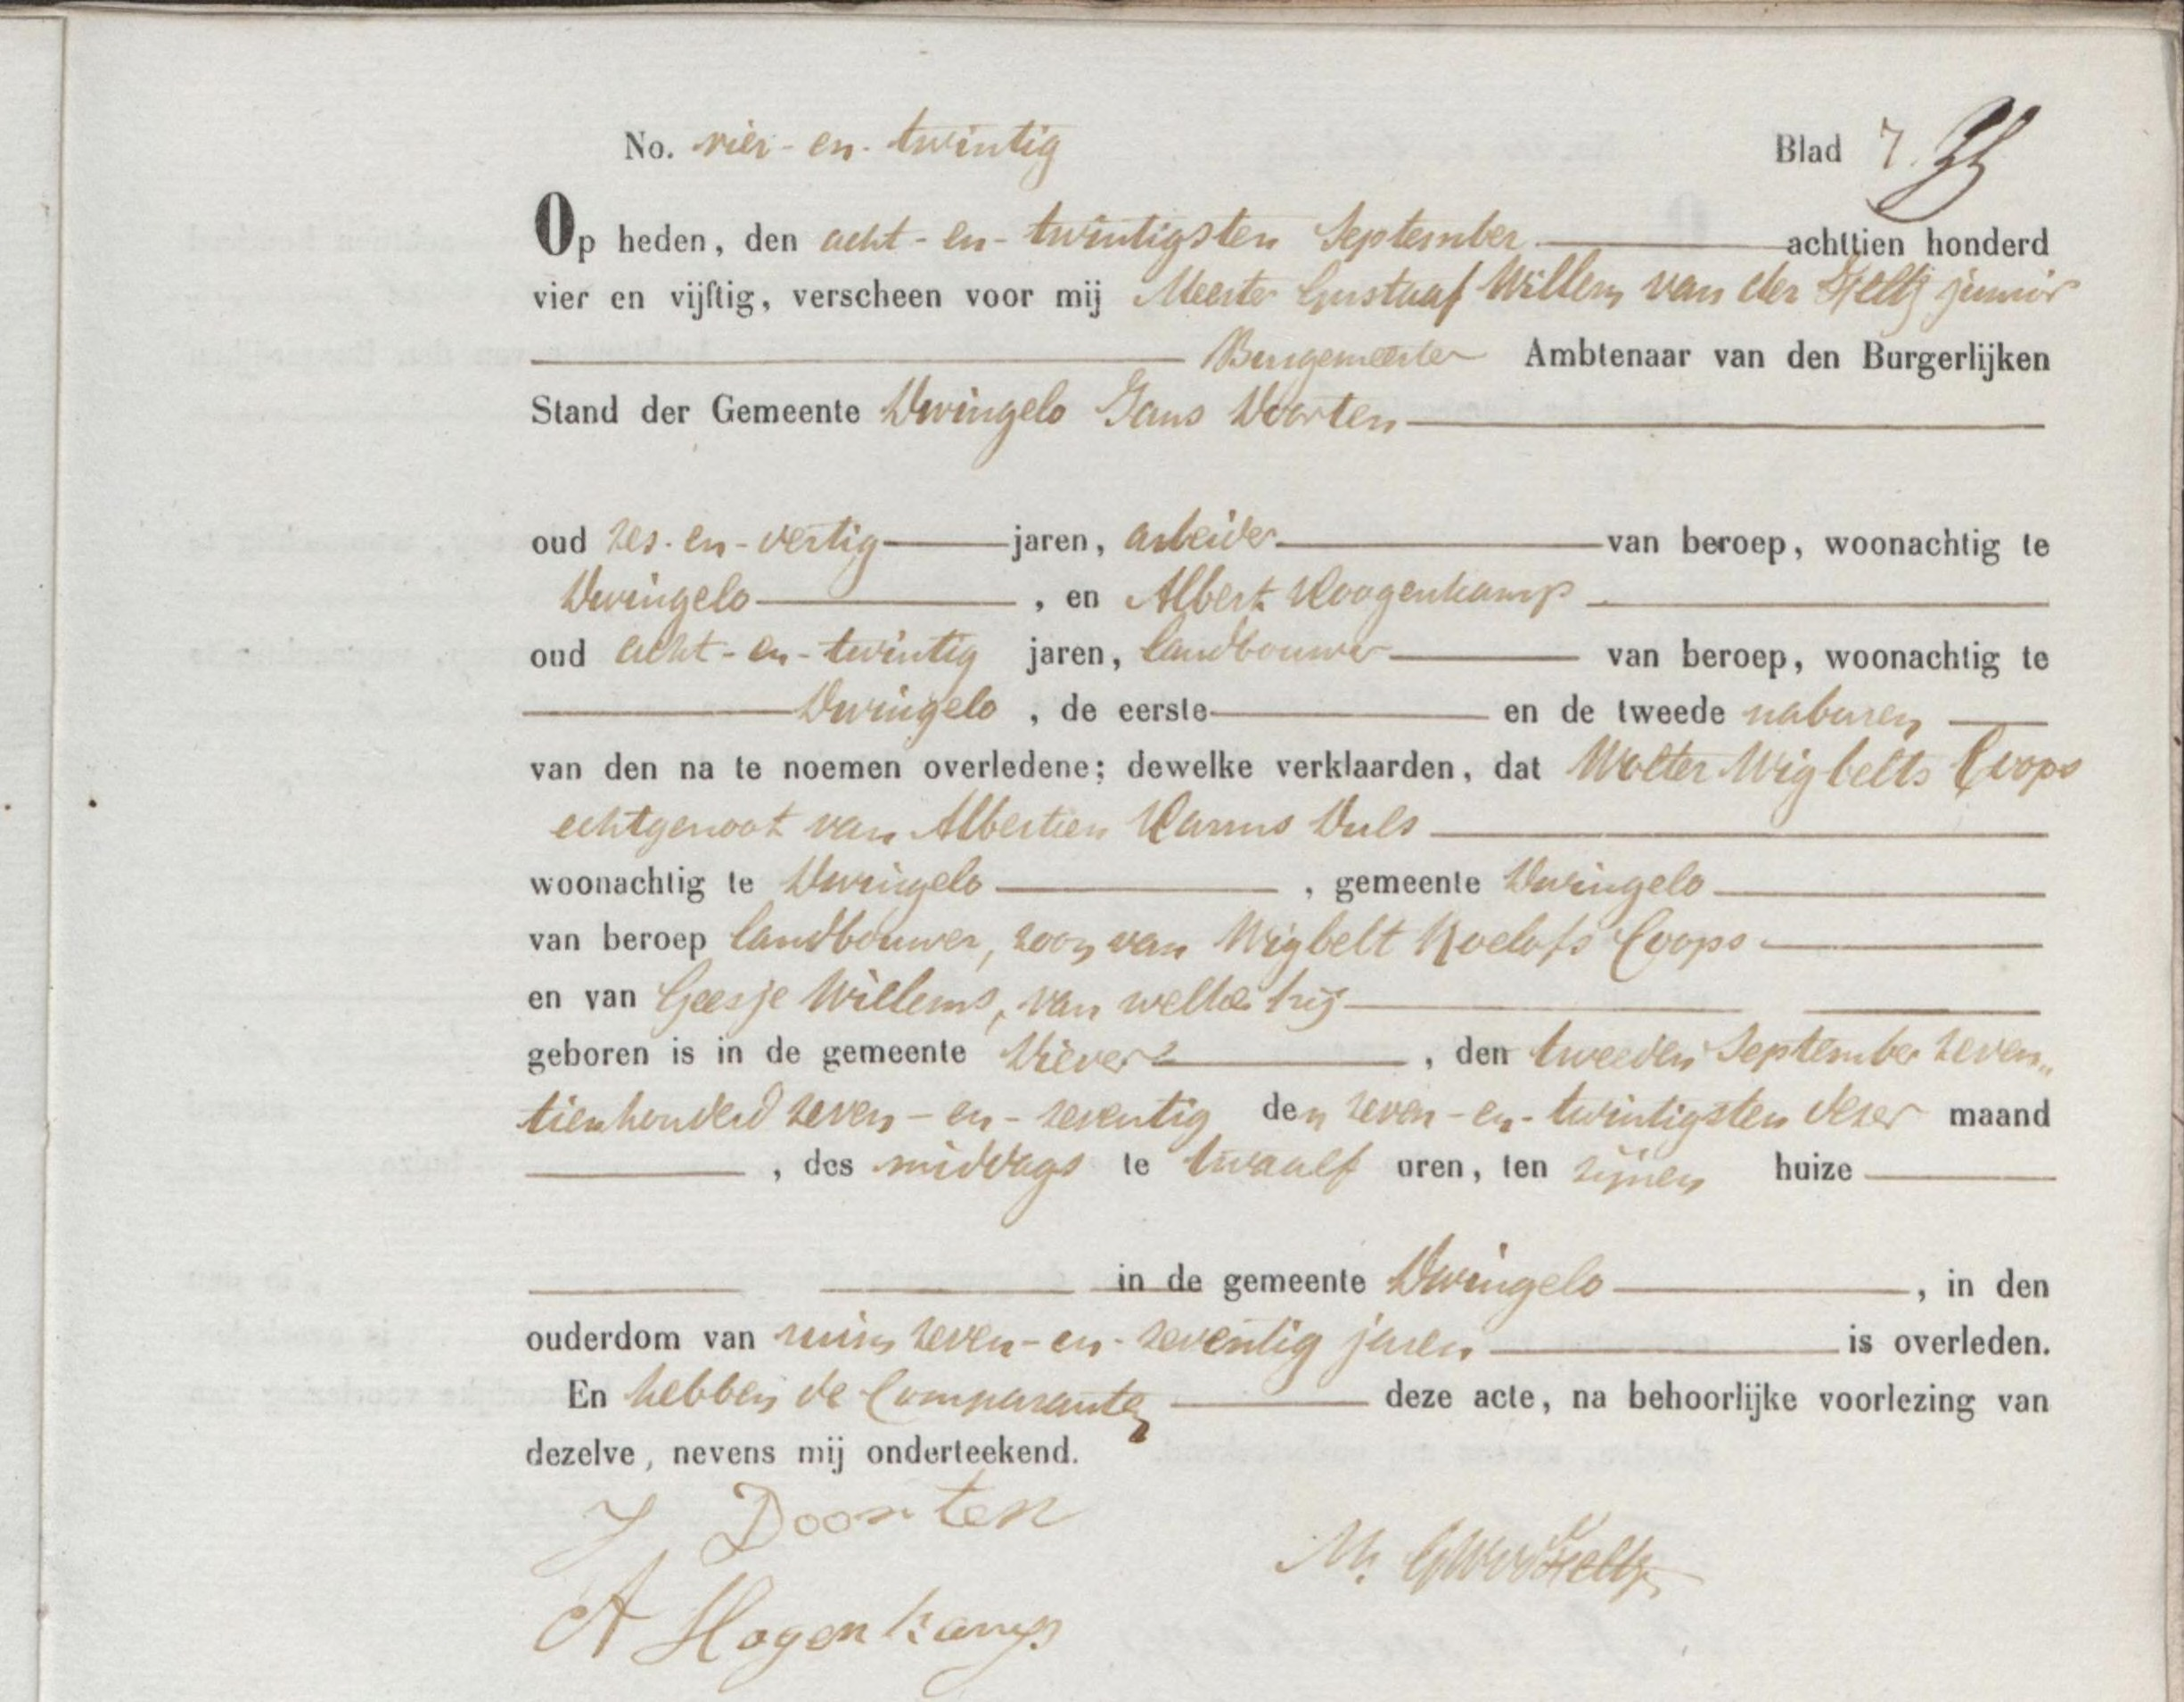 No. vier-en-twintig Blad 7.
Op heden, den acht-en-twintigsten September achttien honderd
vier en vijftig, verscheen voor mij Meester Gustaaf Willem van der Feltz junior
Burgemeester Ambtenaar van den Burgerlijken
Stand der Gemeente Dwingelo Jans Doorten
oud zes-en-veertig jaren, arbeider van beroep, woonachtig te
Dwingelo, en Albert Hoogenkamp
oud acht-en-twintig jaren, landbouwer van beroep, woonachtig te
Dwingelo, de eerste en de tweede naburen
van den na te noemen overledene; dewelke verklaarden, dat Wolter Wigbelts Coops
echtgenoot van Albertien Harms Duls
woonachtig te Dwingelo, gemeente Dwingelo
van beroep landbouwer, zoon van Wigbelt Roelofs Coops
en van Geesje Willems, van welke hij
geboren is in de gemeente Diever, den tweeden September zeven„
tienhonderd zeven-en-zeventig den zeven-en-twintigsten dezer maand
, des middags te twaalf uren, ten zijnen huize
in de gemeente Dwingelo, in den
ouderdom van ruim zeven-en-zeventig jaren is overleden.
En hebben de Comparanten deze acte, na behoorlijke voorlezing van
dezelve, nevens mij onderteekend.
J Doorten
Mr. GWvdFeltz
A Hogenkamp